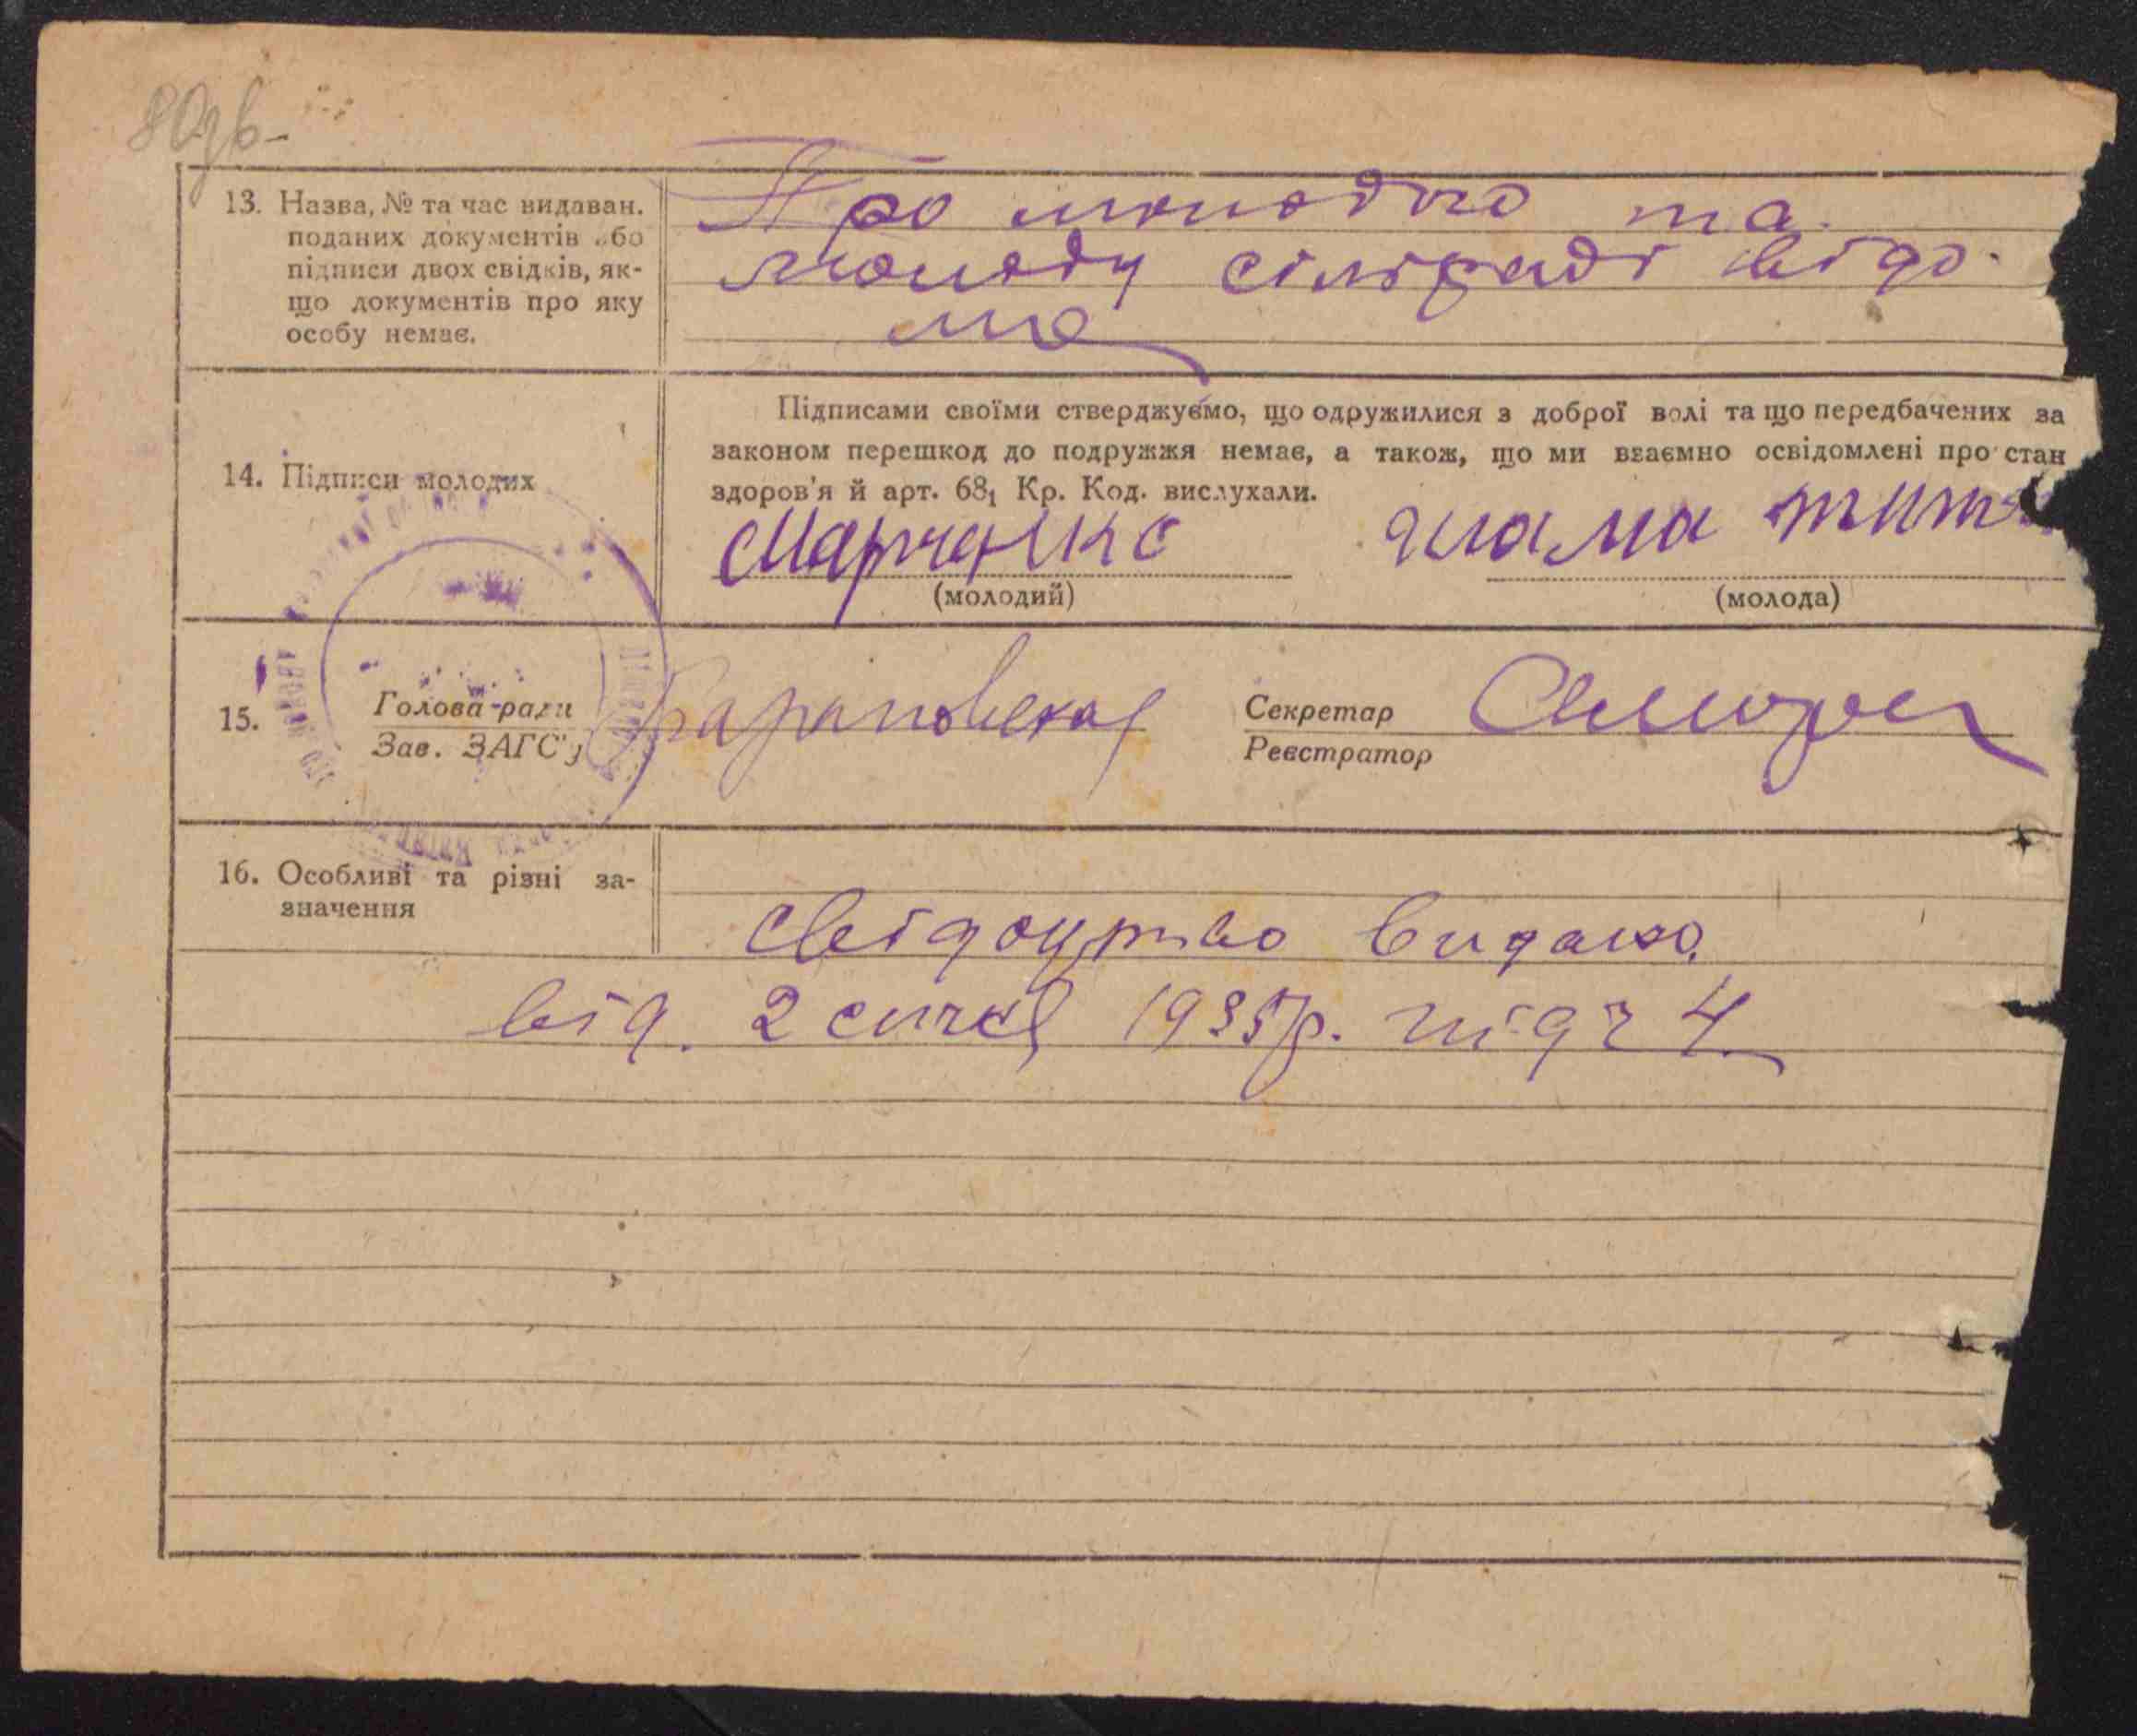 80зв-
13. Назва, № та час видаван.
поданих документів або
підписи двох свідків, як-
що документів про яку
особу немає.
Про молодого та
молоду сільраді відо-
мо
14. Підписи молодих
Підписами своїми стверджуємо, що одружилися з доброї волі та що передбачених за
законом перешкод до подружжя немає, а також, що ми взаємно освідомлені про стан
здоров'я й арт. 68₁ Кр. Код. вислухали.
Марченко
(молодий)
(молода)
15.
Голова ради
Зав. ЗАГС'у
Секретар
Реєстратор
16. Особливі та різні за-
значення
Свідоцтво видано
від. 2 січня 1935р. під ч 4